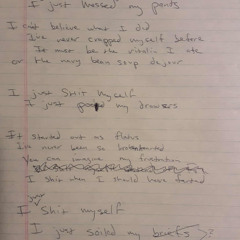 I just messed my pants
I can't believe what I did
I've never crapped myself before
It must be the vitalin I ate
or the navy bean soup dejour
I just Shit myself
I just pooped my drawers
It started out as flatus
I've never been so
You can imagine my frustration
I shit when I should have farted
I Shit myself
I just soiled my briefs